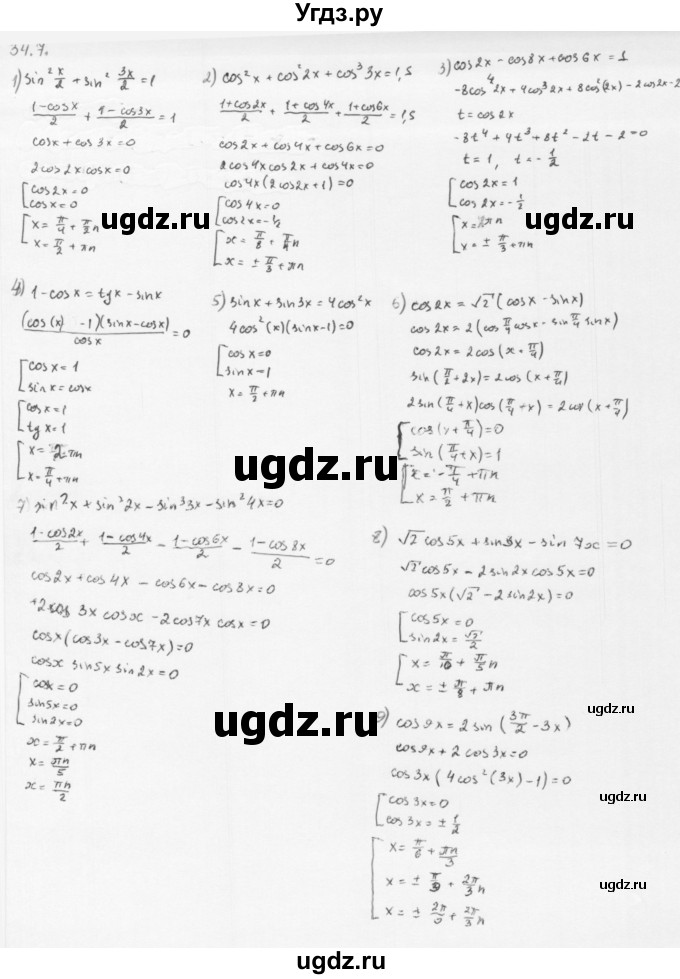 Угдз.ру
34.7.
1) sin² x/2 + sin² 3x/2 = 1
(1-cosx)/2 + (1-cos3x)/2 = 1
cosx + cos3x = 0
2cos2x cosx = 0
[cos2x = 0
cosx = 0
[x = π/4 + π/2 n
x = π/2 + πn
2) cos²x + cos²2x + cos²3x = 1,5
(1+cos2x)/2 + (1+cos4x)/2 + (1+cos6x)/2 = 1,5
cos2x + cos4x + cos6x = 0
2cos4x cos2x + cos4x = 0
cos4x(2cos2x+1) = 0
[cos4x = 0
cos2x = -1/2
[x = π/8 + π/4 n
x = ± π/3 + πn
3) cos2x - cos8x + cos6x = 1
-8cos⁴2x + 4cos³2x + 8cos²(2x) - 2cos2x - 2
t = cos2x
-8t⁴ + 4t³ + 8t² - 2t - 2 = 0
t = 1, t = -1/2
[cos2x = 1
cos2x = -1/2
[x = πn
x = ± π/3 + πn
4) 1 - cosx = tgx - sinx
(cos(x) - 1)(sinx - cosx)/cosx = 0
[cosx = 1
sinx = cosx
[cosx = 1
tgx = 1
[x = 2πn
x = π/4 + πn
5) sinx + sin3x = 4cos²x
4cos²(x)(sinx-1) = 0
[cosx = 0
sinx = 1
x = π/2 + πn
6) cos2x = √2 (cosx - sinx)
cos2x = 2(cos π/4 cosx - sin π/4 sinx)
cos2x = 2cos(x + π/4)
sin(π/2 + 2x) = 2cos(x + π/4)
2sin(π/4 + x)cos(π/4 + x) = 2cos(x + π/4)
[cos(x + π/4) = 0
sin(π/4 + x) = 1
[x = -π/4 + πn
x = π/2 + πn
7) sin²x + sin²2x - sin²3x - sin²4x = 0
(1-cos2x)/2 + (1-cos4x)/2 - (1-cos6x)/2 - (1-cos8x)/2 = 0
cos2x + cos4x - cos6x - cos8x = 0
+2cos3x cosx - 2cos7x cosx = 0
cosx(cos3x - cos7x) = 0
cosx sin5x sin2x = 0
[cosx = 0
sin5x = 0
sin2x = 0
x = π/2 + πn
x = πn/5
x = πn/2
8) √2 cos5x + sin3x - sin7x = 0
√2 cos5x - 2sin2x cos5x = 0
cos5x(√2 - 2sin2x) = 0
[cos5x = 0
sin2x = √2/2
[x = π/10 + π/5 n
x = ± π/8 + πn
9) cos9x = 2sin(3π/2 - 3x)
cos9x + 2cos3x = 0
cos3x(4cos²(3x) - 1) = 0
[cos3x = 0
cos3x = ± 1/2
[x = π/6 + πn/3
x = ± π/9 + 2π/3 n
x = ± 2π/9 + 2π/3 n
ugdz.ru
ugdz.ru
ugdz.ru
ugdz.ru
ugdz.ru
ugdz.ru
ugdz.ru